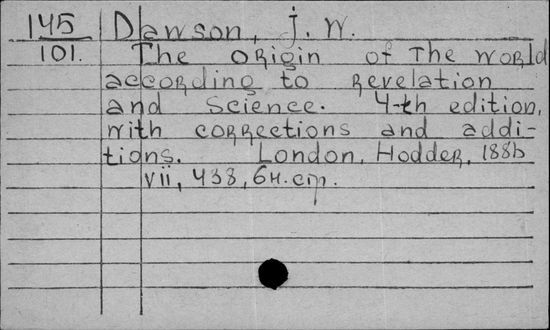 145 Dawson, J. W.
101. The origin of the world
according to revelation
and science. 4-th edition,
with corrections and addi-
tions. London, Hodder, 1886
vii, 438, 64. cm.